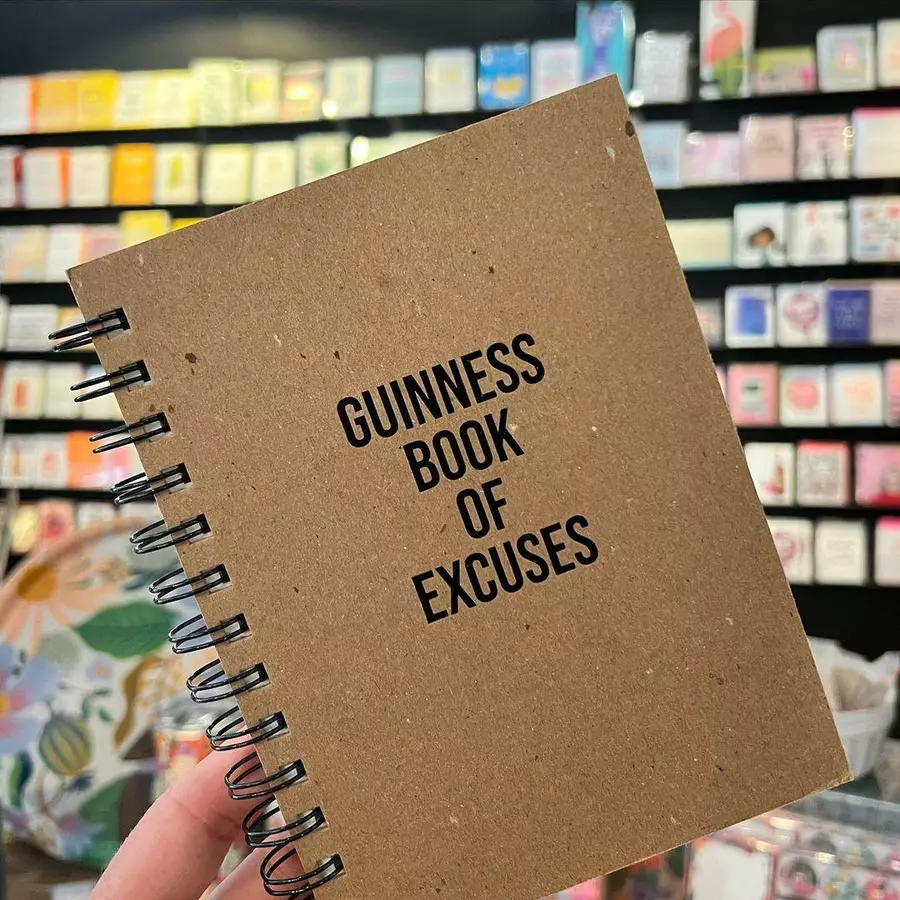 GUINNESS
BOOK
OF
EXCUSES